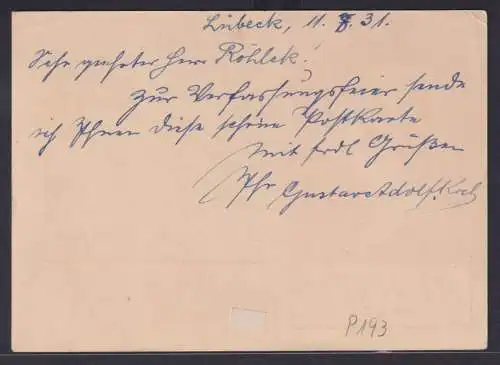 Lübeck, 11. 8. 31.
Sehr geehrter Herr Röhlek!
Zur Verfassungsfeier sende
ich Ihnen diese schöne Postkarte
Mit frdl Grüßen
Ihr Gustav Adolf Koch
P193